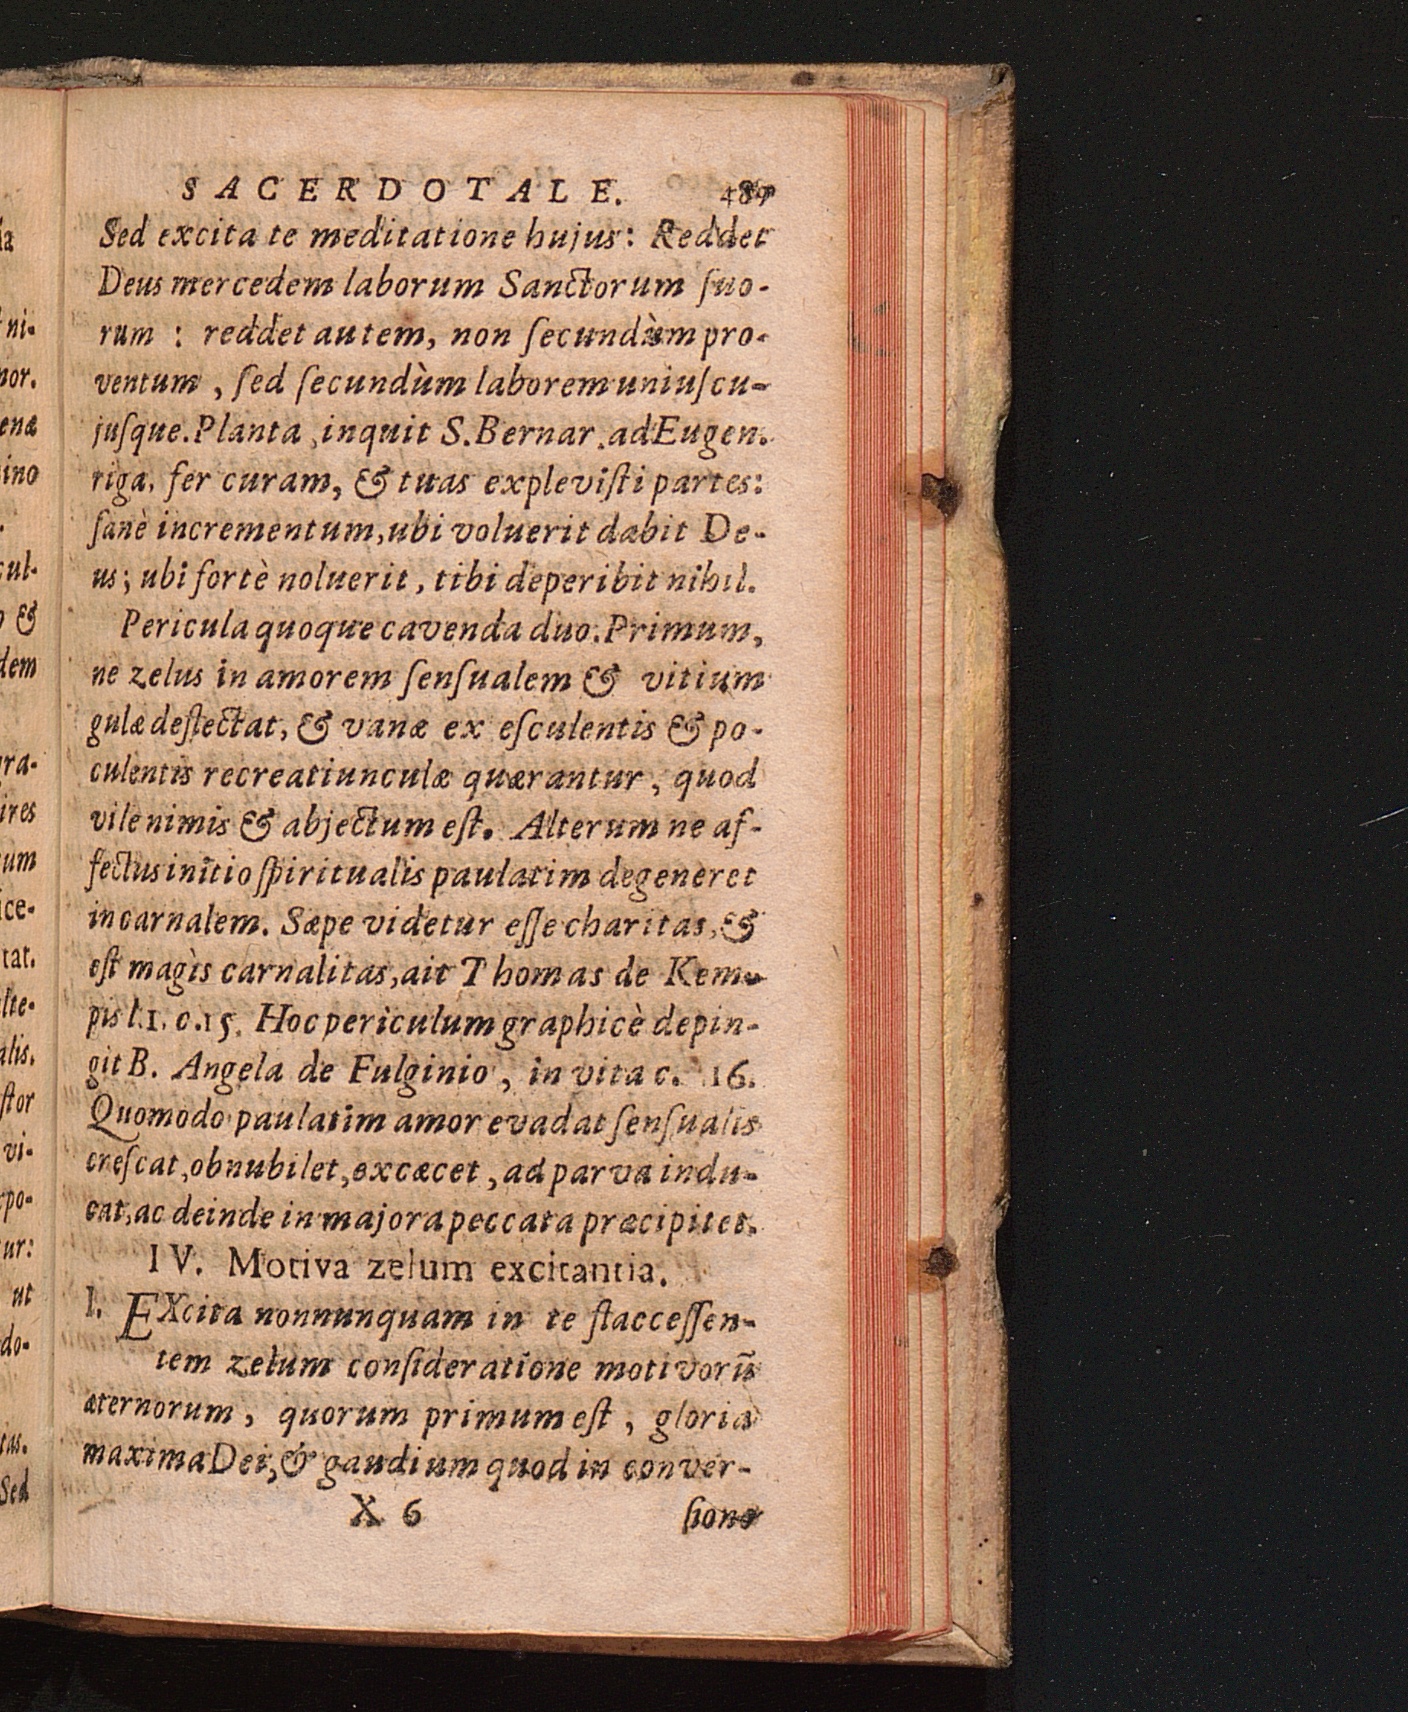 SACERDOTALE. 487
Sed excita te meditatione hujus: Reddet
Deus mercedem laborum Sanctorum ſuo-
rum : reddet autem, non ſecundùm pro-
ventum, ſed ſecundùm laborem uniuſcu-
juſque. Planta, inquit S. Bernar. ad Eugen.
riga, fer curam, & tuas expleviſti partes:
ſanè incrementum, ubi voluerit dabit De-
us; ubi fortè noluerit, tibi deperibit nihil.
Pericula quoque cavenda duo. Primum,
ne zelus in amorem ſenſualem & vitium
gulæ deflectat, & vanæ ex eſculentis & po-
culentis recreatiunculæ quærantur, quod
vile nimis & abjectum eſt. Alterum ne af-
fectus initio ſpiritualis paulatim degeneret
in carnalem. Sæpe videtur eſſe charitas, &
eſt magìs carnalitas, ait Thomas de Kem-
pis l. 1. c. 15. Hoc periculum graphicè depin-
git B. Angela de Fulginio, in vita c. 16.
Quomodo paulatim amor evadat ſenſualis
creſcat, obnubilet, excæcet, ad parva indu-
cat, ac deinde in majora peccata præcipitet.
IV. Motiva zelum excitantia.
I. EXcita nonnunquam in te flacceſſen-
tem zelum conſideratione motivorū
æternorum, quorum primum eſt, gloria
maxima Dei, & gaudium quod in conver-
X 6 ſione